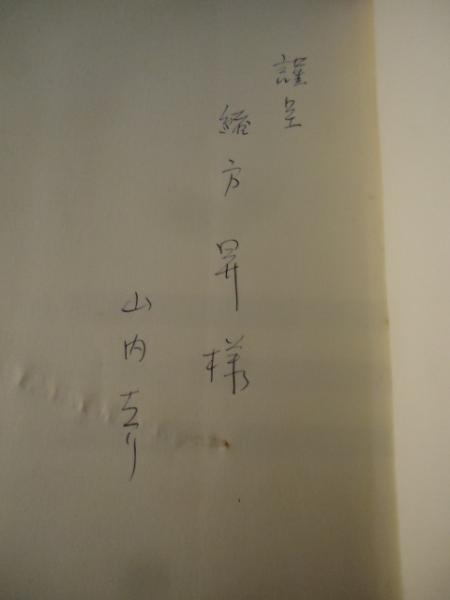 謹呈
緒方昇様
山内